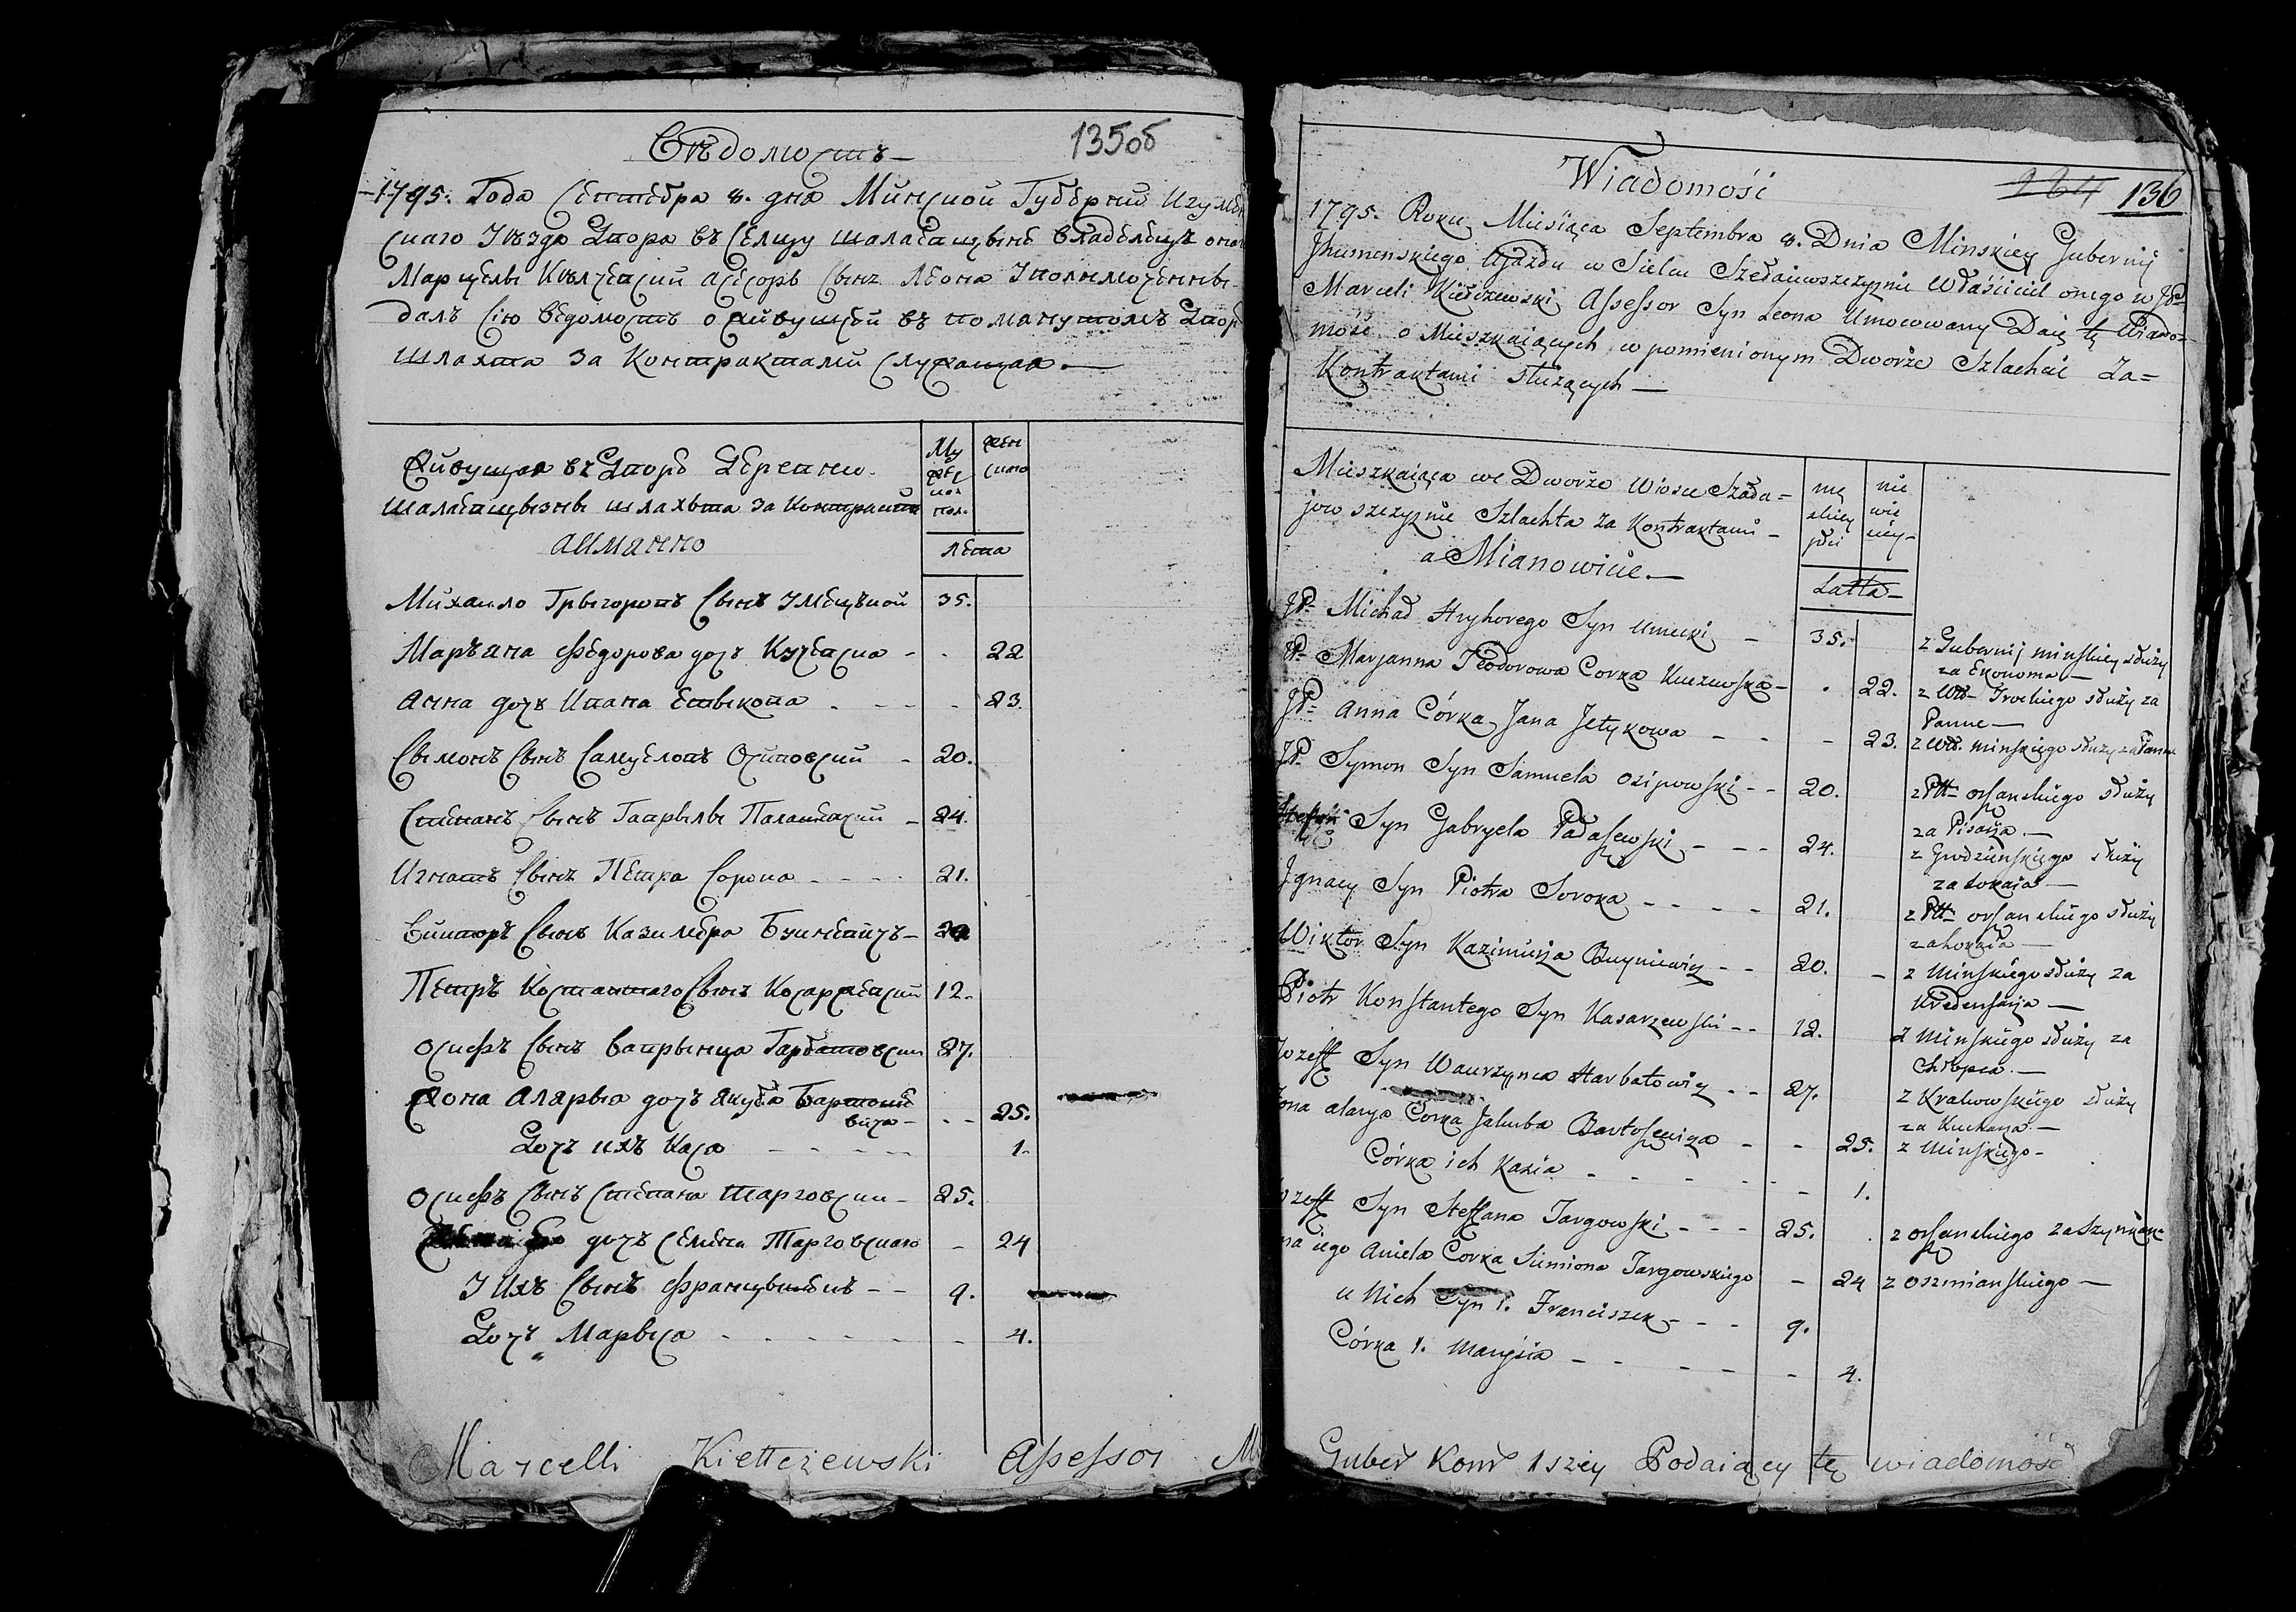 Вѣдомость
135об
1795. Года Сентебра 8. дня Минской Губернии Игумен
скаго Уѣзда Двора въ Селцу владелецъ онаго
Марцели асесоръ Сынъ Леона Уполмоченны
далъ сію ведомость о живущей въ помянутомъ Дворе
шляхта за Контрактами служащая.
Живущая въ Дворе Деревни
шляхта за Контракта
аимянно
Му
жес
ког
пол.
жен
скаго
лета
Михаило Грыгоровъ Сынъ Умецкой 35.
Марьяна Федорова дочъ - - 22
Анна дочъ Ивана - - - - 23.
Сымонъ Сынъ Самуеловъ Осиповский - 20.
Степанъ Сынъ Гаврылы - 24.
Игнатъ Сынъ Петра Сорока - - - - 21.
Викторъ Сынъ Казимера -
Петръ Костантаго Сынъ 12.
Осифъ Сынъ Вавры​нца 27.
Жона Алярыя дочъ Якуба Бартоше
вича - - - 25.
Дочъ ихъ Кася - - - - - 1.
Осифъ Сынъ Степана Тарговски - 25.
дочъ Семена Тарговскаго - 24
У Ихъ Сынъ - - 9.
Дочъ Марыся - - - - - - 4.
Marcelli Kiełłczewski Assessor
Wiadomość
264 136
1795. Roku Miesiąca Septembra 8. Dnia Minskiey Gubernij
Jhumenskiego Ujazdu w Sielcu Właściciel onego w JP
Marceli Kiełczewski Assessor Syn Leona Umocowany Daię tę Wiado=
mość o Mieszkaiących w pomienionym Dworze Szlachcie Za=
Kontraktami służących —
Mieszkaiąca we Dworze Wiosce Szała=
jewszczyznie Szlachta za Kontraktami -
a Mianowicie. —
mę
zkiey
płci
nie
wie
ściey -
Latta -
JP Michał Hryhorego Syn Umecki - 35. z Gubernij minskiey słuzy
za Ekonoma -
JP Maryanna Teodorowa Corka - . 22. z Wdz Trockiego słuzy za
Panne -
JP Anna Córka Jana Jetykowa - - - 23. z Wdz. minskiego słuzy za Panne
JP Symon Syn Samuela Osipowski - - 20. z Ptt orszanskiego słuzy
za Pisarza. -
Stefan Syn Gabryela Pałaszewski - - - 24. z Grodzienskiego słuzy
za Lokaia -
Jgnacy Syn Piotra Soroka - - - - 21. z Ptt orszanskiego słuzy
za Lokaia -
Wiktor Syn Kazimierza Buyniewicz - - 20. - z Minskiego słuzy za
Kredensarza -
Piotr Konstantego Syn Kasarzewski - - 12. z Minskiego słuzy za
Chłopca. -
Jozeff Syn Wawrzynca Harbatowicz - - 27. z Krakowskiego słuzy
za Kucharza. -
Żona alarya Corka Jakuba Bartoszewicza - - 25. z Minskiego -
Córka ich Kasia - - - - - - 1.
Jozeff Syn Steffana Targowski - - - 25. . z orszanskiego za Szynkarza
Żona iego Aniela Corka Siemiona Targowskiego - 24 z oszmianskiego -
u Nich Syn 1. Franciszek - - - 9.
Córka 1. Marysia - - - - - 4.
Guber Kom 1szey Podaiący tę wiadomość